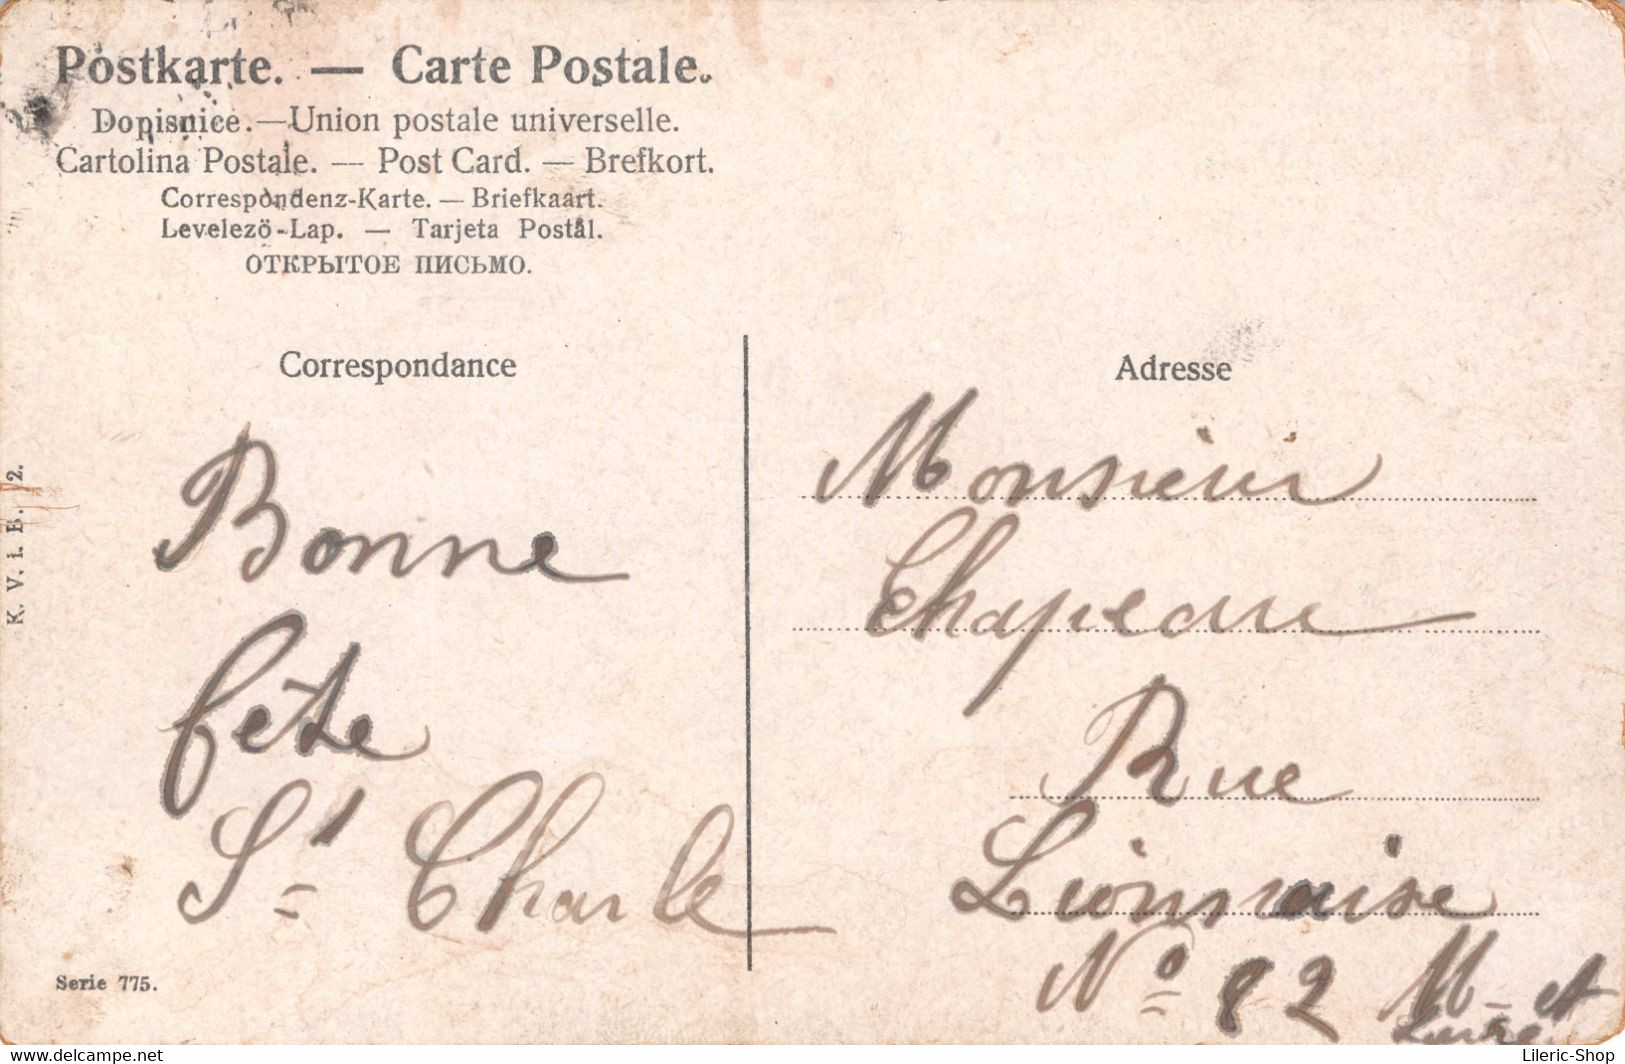 Postkarte. — Carte Postale.
Dopisnice. — Union postale universelle.
Cartolina Postale. — Post Card. — Brefkort.
Correspondenz-Karte. — Briefkaart.
Levelező-Lap. — Tarjeta Postal.
ОТКРЫТОЕ ПИСЬМО.
Correspondance
Bonne
fête
St Charle
K. V. i. B. 2.
Serie 775.
Adresse
Monsieur
Chapeau
Rue
Lionnaise
No 82 M- et
Lileric-Shop